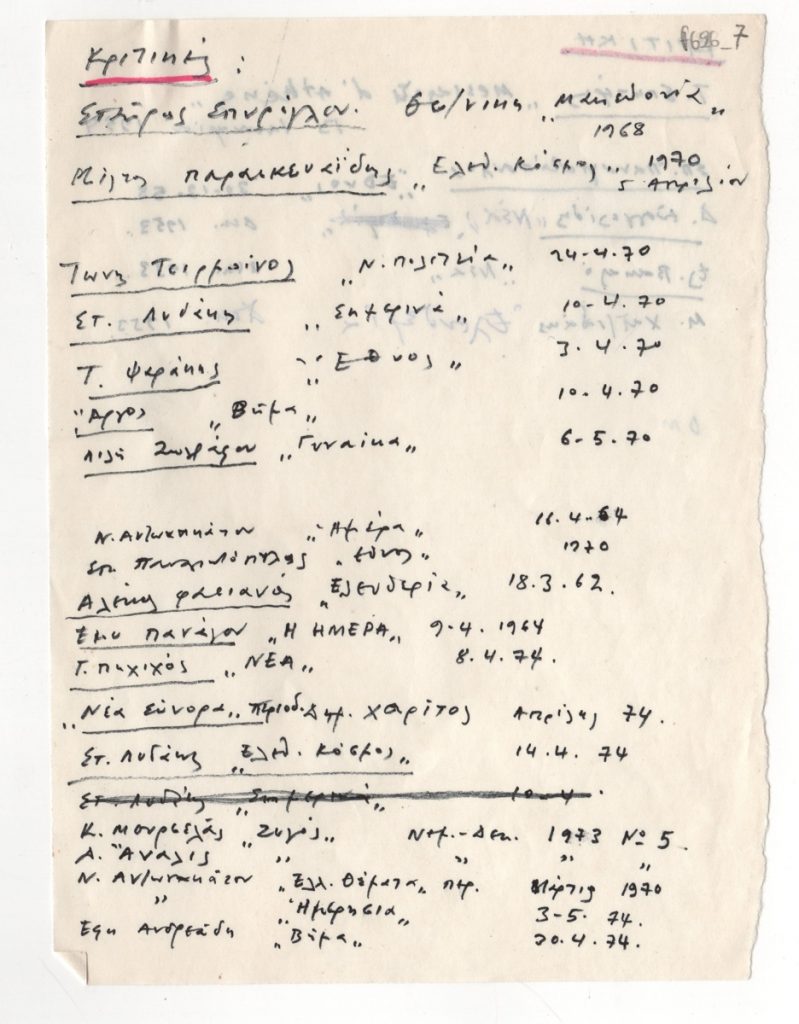 f686_7
Κριτικές :
Σπύρος Σπυρίγλου. Θεσ/νικη „Μακεδονία„
1968
Μίλτης Παρασκευαΐδης „Ελευθ. Κόσμος„ 1970
5 Απριλίου
Τώνης Τσιρμπίνος „Ν. Πολιτεία„ 24-4.70
Στ. Λυδάκης „Σημερινά„ 10-4.70
Τ. Ψαράκης „Εθνος„ 3.4.70
"Άργος „Βήμα„ 10.4.70
Λιλή Ζωγράφου „Γυναίκα„ 6-5.70
Ν. Αντωνακάτου „Ημέρα„ 16.4.64
Επ. „Εθνος„ 1970
Αλέκος Φασιανός „Ελευθερία„ 18.3.62.
Εμυ Πανάγου „Η ΗΜΕΡΑ„ 9-4.1964
Γ. Πηχιχός „ΝΕΑ„ 8.4.74.
„Νέα Σύνορα„ Περιοδ. Δημ. Χαρίτος Απρίλης 74.
Στ. Λυδάκης „Ελευθ. Κόσμος„ 14.4.74
Στ. Λυδάκης „Σημερινά„ 10-4
Κ. Μουρσελάς „Ζυγός„ Νοεμ.-Δεκ. 1973 Νο 5.
Α. "Άναλις „ „ „ „
Ν. Αντωνακάτου „Ελλ. Θέματα„ περ. Μάρτις 1970
„ „Ημερησια„ 3-5.74.
Εφη Ανδρεάδη „Βήμα„ 20.4.74.